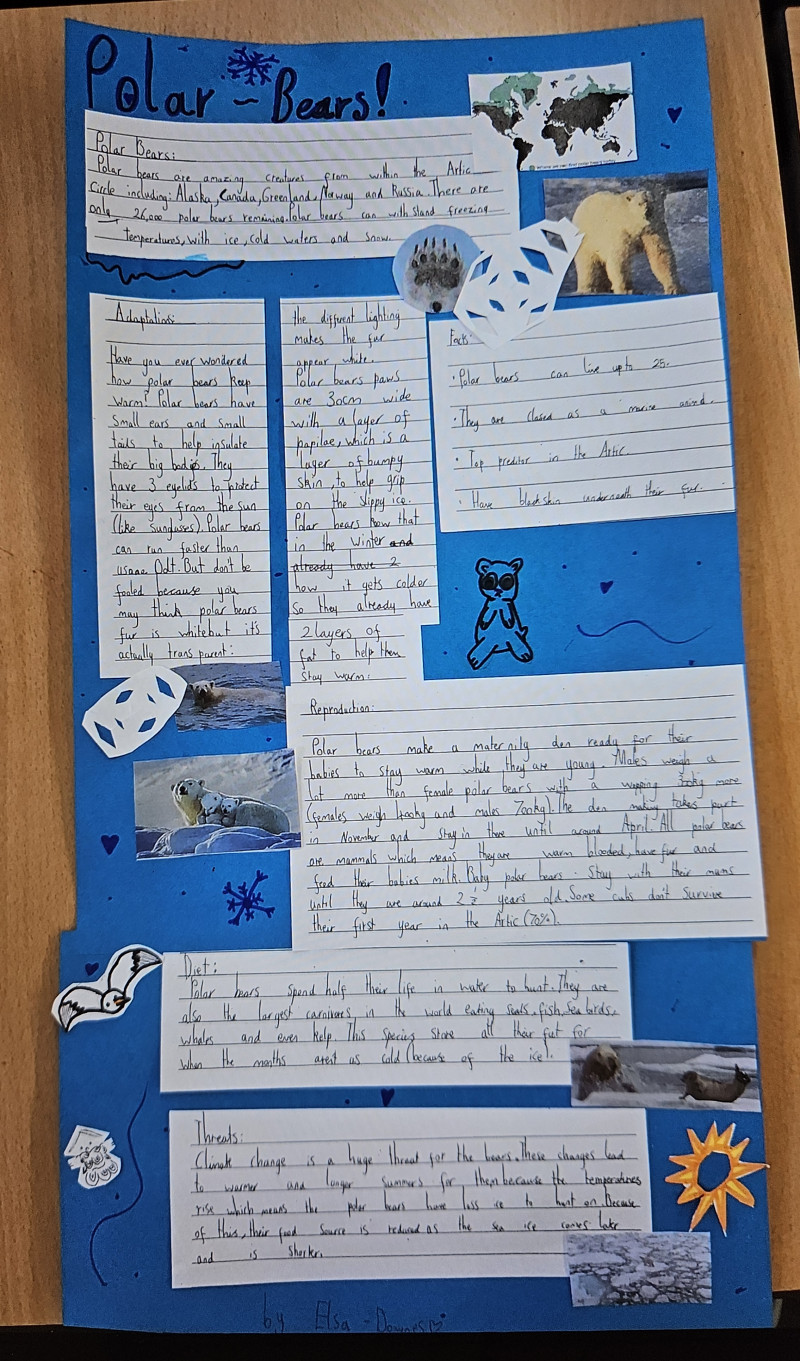 Polar - Bears!
Polar Bears:
Polar bears are amazing creatures from within the Artic
Circle including: Alaska, Canada, Greenland, Norway and Russia. There are
only 26,000 polar bears remaining. Polar bears can withstand freezing
temperatures, with ice, cold waters and snow.
Adaptations:
Have you ever wondered
how polar bears keep
warm? Polar bears have
small ears and small
tails to help insulate
their big bodies. They
have 3 eyelids to protect
their eyes from the sun
(like sunglasses). Polar bears
can run faster than
Bolt. But don't be
fooled because you
may think polar bears
fur is white but it's
actually transparent:
the different lighting
makes the fur
appear white.
Polar bears paws
are 30cm wide
with a layer of
papilae, which is a
layer of bumpy
skin, to help grip
on the slippy ice.
Polar bears know that
in the winter and
already have 2
how it gets colder
so they already have
2 layers of
fat to help them
stay warm.
Facts:
• Polar bears can live upto 25.
• They are classed as a marine animal.
• Top preditor in the Artic.
• Have black skin underneath their fur.
Reproduction:
Polar bears make a maternity den ready for their
babies to stay warm while they are young. Males weigh a
lot more than female polar bears with a wopping 300kg more
(females weigh 400kg and males 700kg). The den making takes part
in November and stay in there until around April. All polar bears
are mammals which means they are warm blooded, have fur and
feed their babies milk. Baby polar bears stay with their mums
until they are around 2 ½ years old. Some cubs don't survive
their first year in the Artic (70%).
Diet:
Polar bears spend half their life in water to hunt. They are
also the largest carnivores in the world eating seals, fish, sea birds,
whales and even kelp. This species store all their fat for
when the months arent as cold (because of the ice).
Threats:
Climate change is a huge threat for the bears. These changes lead
to warmer and longer summers for them because the temperatures
rise which means the polar bears have less ice to hunt on. Because
of this, their food source is reduced as the sea ice comes later
and is shorter.
by Elsa - Downes